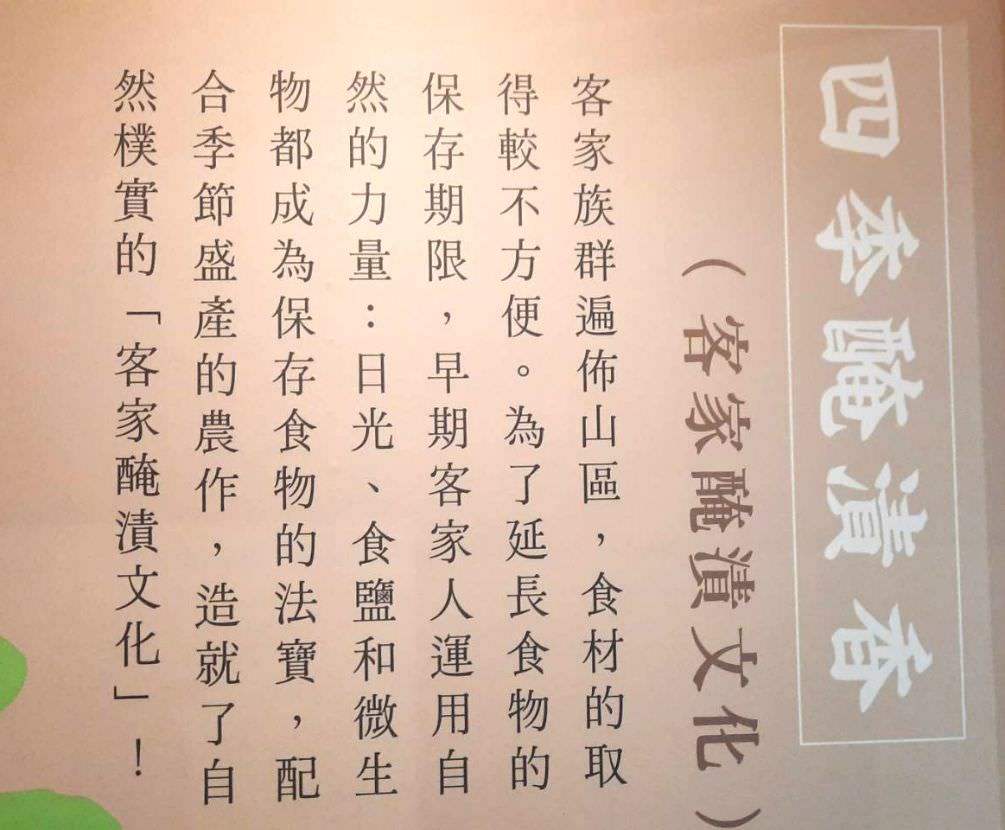 四季醃漬香
(客家醃漬文化)
客家族群遍佈山區，食材的取
得較不方便。為了延長食物的
保存期限，早期客家人運用自
然的力量：日光、食鹽和微生
物都成為保存食物的法寶，配
合季節盛產的農作，造就了自
然樸實的「客家醃漬文化」！